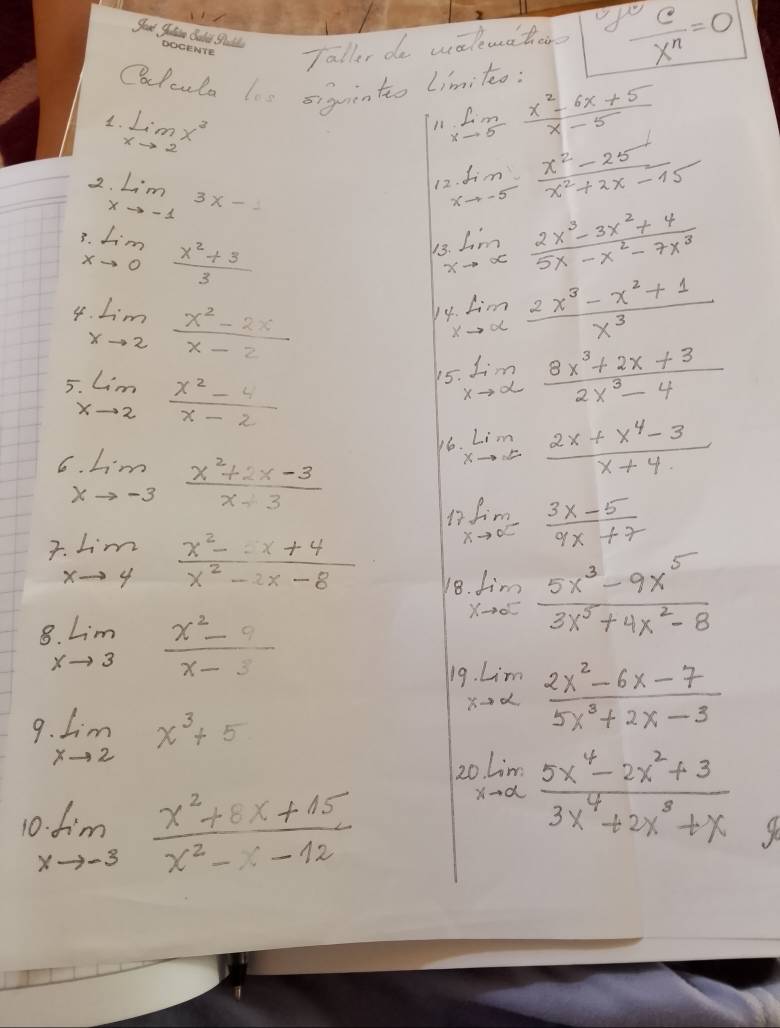 DOCENTE
Taller de matematicas
C/x^n = 0
Calcula los siguientes Limites:
1. Lim x→2 x^3
2. Lim x→-1 3x -
3. Lim x→0 (x^2 + 3)/3
4. Lim x→2 (x^2 - 2x)/(x - 2)
5. Lim x→2 (x^2 - 4)/(x - 2)
6. Lim x→-3 (x^2 + 2x - 3)/(x + 3)
7. Lim x→4 (x^2 - x + 4)/(x^2 - 2x - 8)
8. Lim x→3 (x^2 - 9)/(x - 3)
9. Lim x→2 x^3 + 5
10. Lim x→-3 (x^2 + 8x + 15)/(x^2 - x - 12)
11. Lim x→5 (x^2 - 6x + 5)/(x - 5)
12. Lim x→-5 (x^2 - 25)/(x^2 + 2x - 15)
13. Lim x→∝ (2x^3 - 3x^2 + 4)/(5x - x^2 - 7x^3)
14. Lim x→∝ (2x^3 - x^2 + 1)/x^3
15. Lim x→∝ (8x^3 + 2x + 3)/(2x^3 - 4)
16. Lim x→∝ (2x + x^4 - 3)/(x + 4)
17 Lim x→∝ (3x - 5)/(9x + 7)
18. Lim x→∝ (5x^3 - 9x^5)/(3x^5 + 4x^2 - 8)
19. Lim x→∝ (2x^2 - 6x - 7)/(5x^3 + 2x - 3)
20. Lim x→∝ (5x^4 - 2x^2 + 3)/(3x^4 + 2x^3 + x)